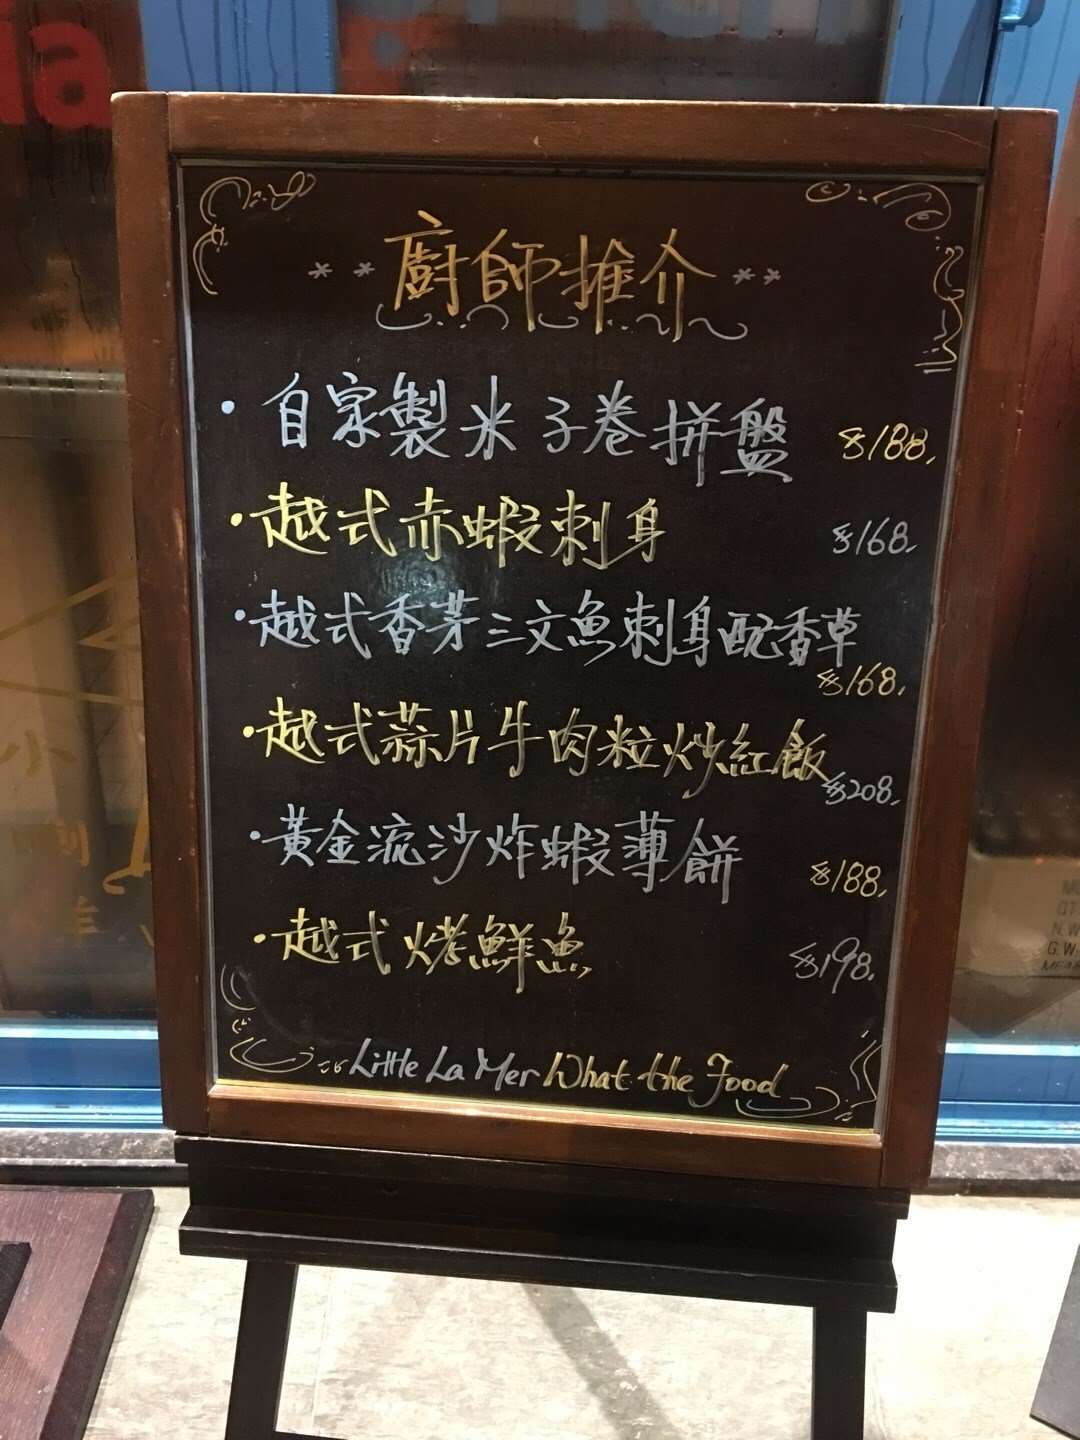 **廚師推介**
·自家製米子卷拼盤 $188.
·越式赤蝦刺身 $168.
·越式香茅三文魚刺身配香草
$168.
·越式蒜片牛肉粒炒紅飯
$208.
·黃金流沙炸蝦薄餅 $188.
·越式烤鮮魚 $198.
Little La Mer What the Food